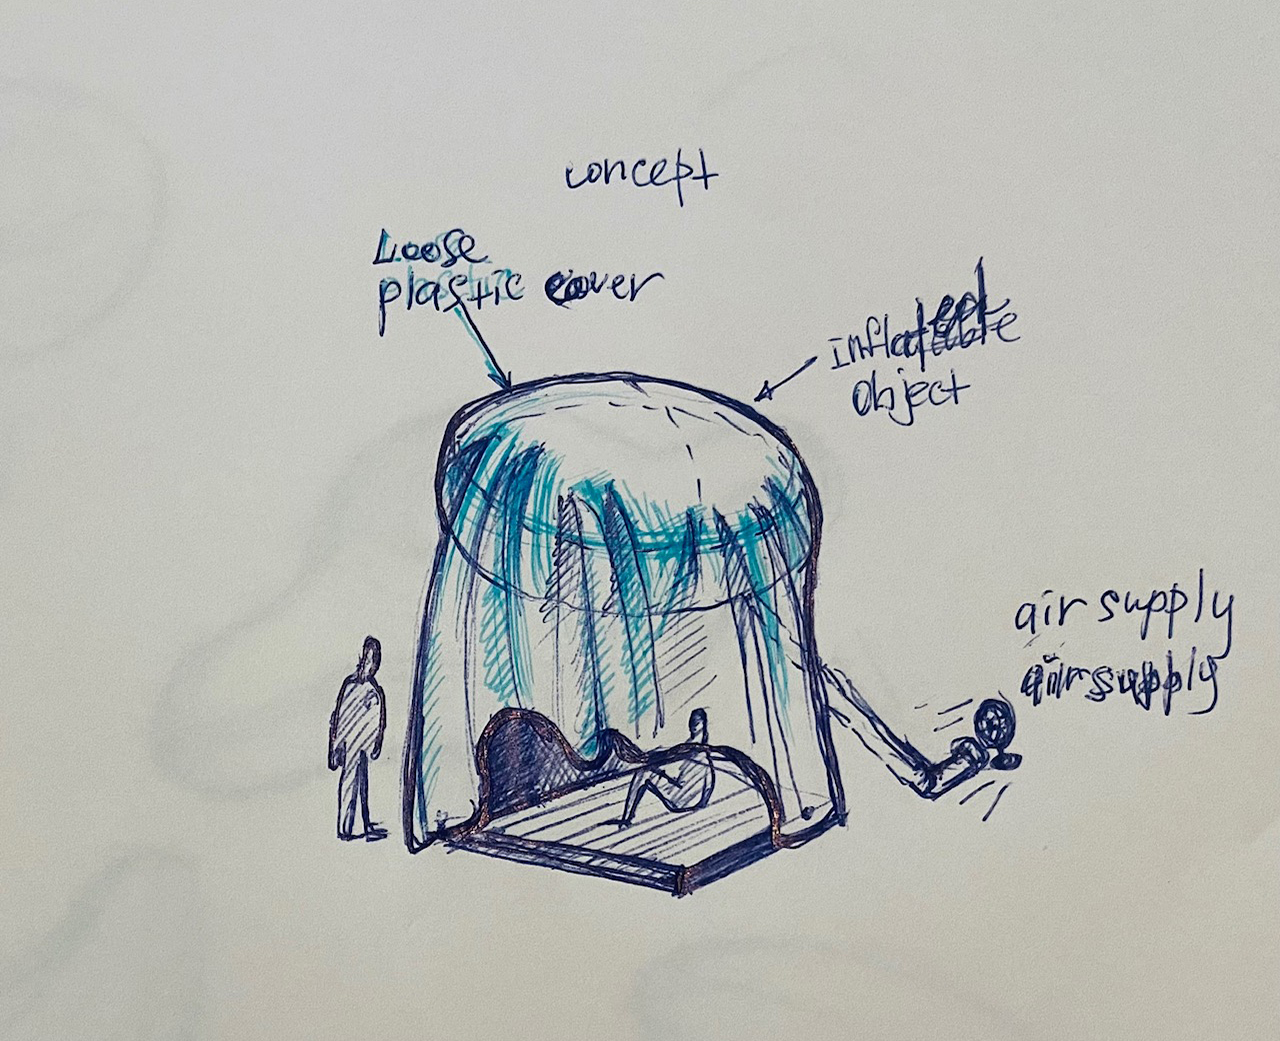 concept
Loose
plastic cover
Inflated
Object
air supply
air supply